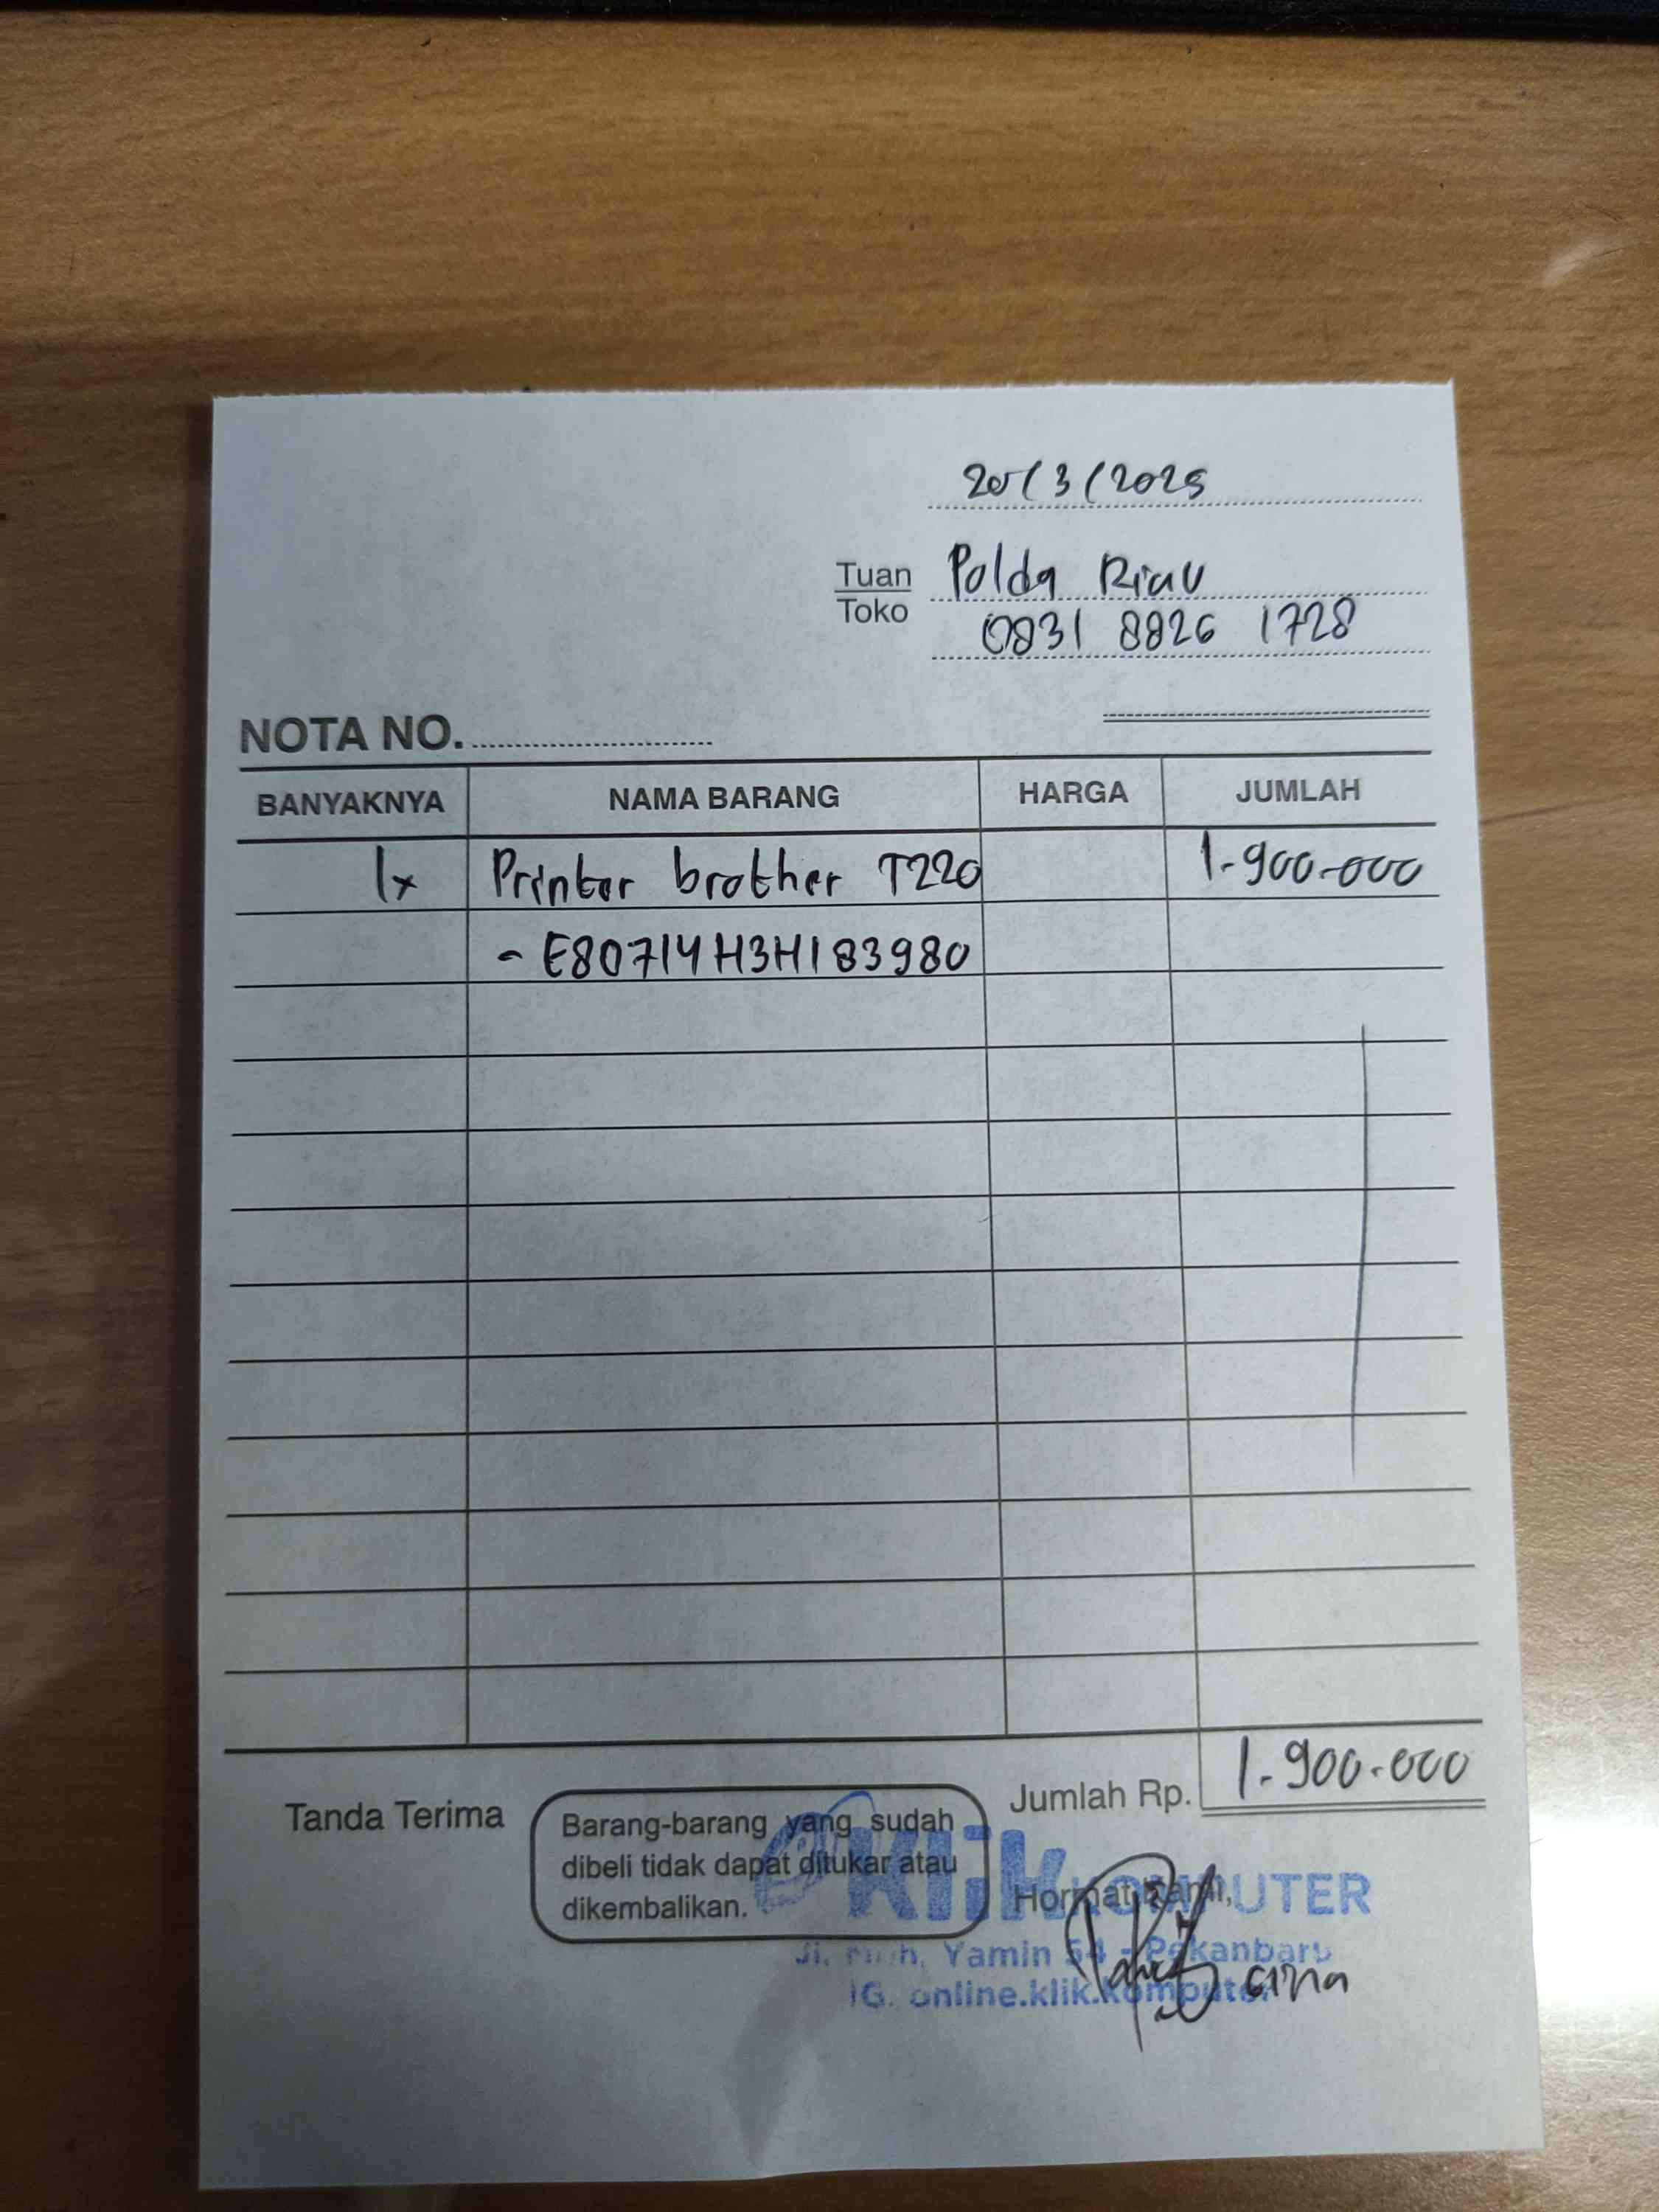 20/3/2025
Tuan Polda Riau
Toko 0831 8826 1728
NOTA NO.
BANYAKNYA NAMA BARANG HARGA JUMLAH
1x Printer brother T220 1.900.000
- E80714H3H183980
Jumlah Rp. 1.900.000
Tanda Terima
Barang-barang yang sudah
dibeli tidak dapat ditukar atau
dikembalikan.
Hormat kami,
eKlik KOMPUTER
Jl. Moh. Yamin 54 - Pekanbaru
IG. online.klik.komputer